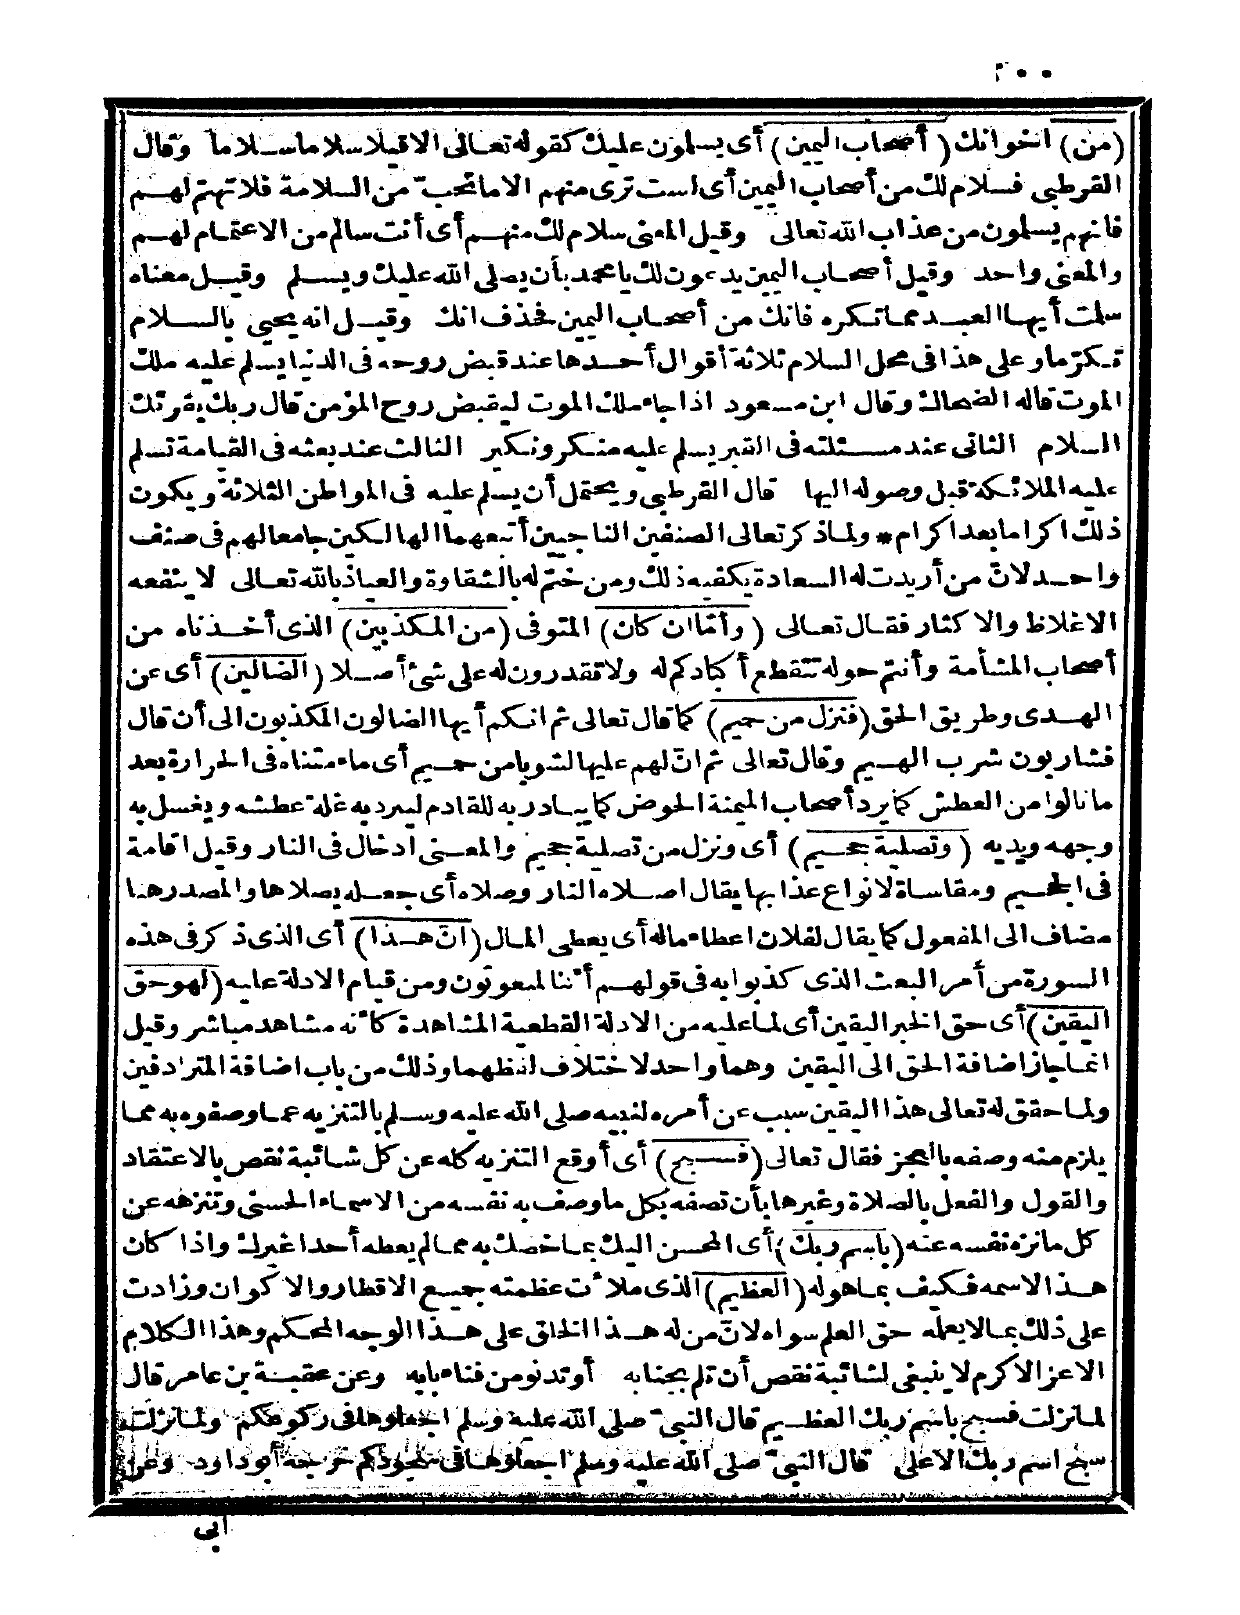 ٢٠٠
(من) اخوانك (أصحاب اليمين) أى يسلمون عليك كقوله تعالى الاقيلا سلاما سلاما وقال
القرطبى فسلام لك من أصحاب اليمين أى لست ترى منهم الا ما تحب من السلامة فلا تهتم لهم
فانهم يسلمون من عذاب الله تعالى وقيل المعنى سلام لك منهم أى أنت سالم من الاغتمام لهم
والمعنى واحد وقيل أصحاب اليمين يدعون لك يا محمد بأن يصلى الله عليك ويسلم وقيل معناه
سلمت أيها العبد مما تكره فانك من أصحاب اليمين فحذف انك وقيل انه يحيى بالسلام
تكرّما وعلى هذا فى محل السلام ثلاثة أقوال أحدها عند قبض روحه فى الدنيا يسلم عليه ملك
الموت قاله الضحاك وقال ابن مسعود اذا جاء ملك الموت ليقبض روح المؤمن قال ربك يقرئك
السلام الثانى عند مسئلته فى القبر يسلم عليه منكر ونكير الثالث عند بعثه فى القيامة تسلم
عليه الملائكة قبل وصوله اليها قال القرطبى ويحتمل أن يسلم عليه فى المواطن الثلاثة ويكون
ذلك اكراما بعد اكرام * ولما ذكر تعالى الصنفين الناجيين أتبعهما الهالكين جامعا لهم فى صنف
واحد لانّ من أريدت له السعادة يكفيه ذلك ومن ختم له بالشقاوة والعياذ بالله تعالى لا ينفعه
الاغلاظ والاكثار فقال تعالى (وأمّا ان كان) المتوفى (من المكذبين) الذى أخذناه من
أصحاب المشأمة وأنتم حوله تتقطع أكبادكم له ولا تقدرون له على شئ أصلا (الضالين) أى عن
الهدى وطريق الحق (فنزل من حميم) كما قال تعالى ثم انكم أيها الضالون المكذبون الى أن قال
فشاربون شرب الهيم وقال تعالى ثم انّ لهم عليها لشوبا من حميم أى ماء متناه فى الحرارة بعد
ما نالوا من العطش كما يرد أصحاب الميمنة الحوض كما يبادر به للقادم ليبرد به غلة عطشه ويغسل به
وجهه ويديه (وتصلية جحيم) أى ونزل من تصلية جحيم والمعنى ادخال فى النار وقيل اقامة
فى الجحيم ومقاساة لانواع عذابها يقال اصلاه النار وصلاه أى جعله يصلاها والمصدر هنا
مضاف الى المفعول كما يقال لفلان اعطاء ماله أى يعطى المال (انّ هذا) أى الذى ذكر فى هذه
السورة من أمر البعث الذى كذبوا به فى قولهم أئنا لمبعوثون ومن قيام الادلة عليه (لهو حق
اليقين) أى حق الخبر اليقين أى لما عليه من الادلة القطعية المشاهدة كأنه مشاهد مباشر وقيل
انما جاز اضافة الحق الى اليقين وهما واحد لاختلاف لفظهما وذلك من باب اضافة المترادفين
ولما حقق له تعالى هذا اليقين سبب عن أمره لنبيه صلى الله عليه وسلم بالتنزيه عما وصفوه به مما
يلزم منه وصفه بالعجز فقال تعالى (فسبح) أى أوقع التنزيه كله عن كل شائبة نقص بالاعتقاد
والقول والفعل بالصلاة وغيرها بأن تصفه بكل ما وصف به نفسه من الاسماء الحسنى وتنزهه عن
كل ما نزه نفسه عنه (باسم ربك) أى المحسن اليك بما خصك به مما لم يعطه أحدا غيرك واذا كان
هذا لاسمه فكيف بما هو له (العظيم) الذى ملأت عظمته جميع الاقطار والاكوان وزادت
على ذلك بما لا يعلمه حق العلم سواه لانّ من له هذا الخلق على هذا الوجه المحكم وهذا الكلام
الاعز الاكرم لا ينبغى لشائبة نقص أن تلم بجنابه أو تدنو من فناء بابه وعن عقبة بن عامر قال
لما نزلت فسبح باسم ربك العظيم قال النبىّ صلى الله عليه وسلم اجعلوها فى ركوعكم ولما نزلت
سبح اسم ربك الاعلى قال النبىّ صلى الله عليه وسلم اجعلوها فى سجودكم خرجه أبو داود وعن
أبى